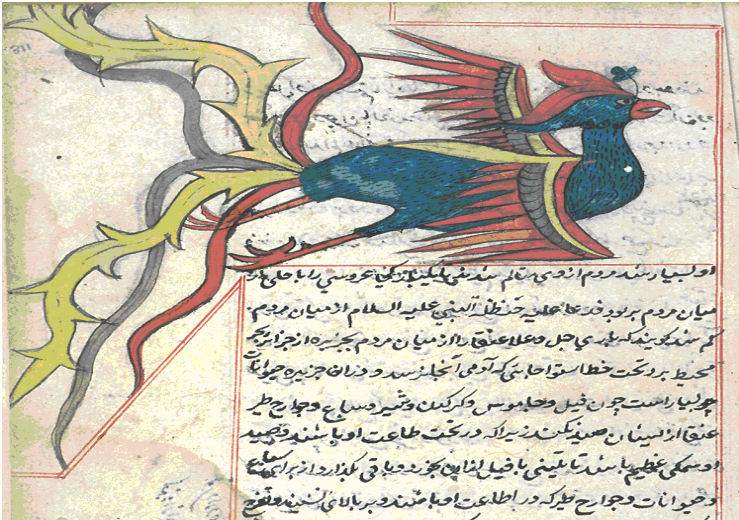 او بسیار شد مردم از وی متالم شدند عروسی را با حلی
میان مردم بربود فدعا علیه حنظلة النبی علیه السلام از میان مردم
کم شد کویند که باری جل و علا عنقا را از میان مردم بجزیره از جزایر بحر
محیط برد تحت خط استوا جایی که آدمی آنجا نرسد و دران جزیره حیوانات
بسیار است چون فیل و جاموس و کرکدن و شیر و سباع و جوارح طیر
عنقا از ایشان صید نکند زیرا که در تحت طاعت او باشند و صید
او سمکی عظیم باشد یا تنینی یا فیل ازان بخورد و باقی بکذارد از برای سباع
و حیوانات و جوارح طیر که در اطاعت او باشند و بر بالای نشیند و تفرج